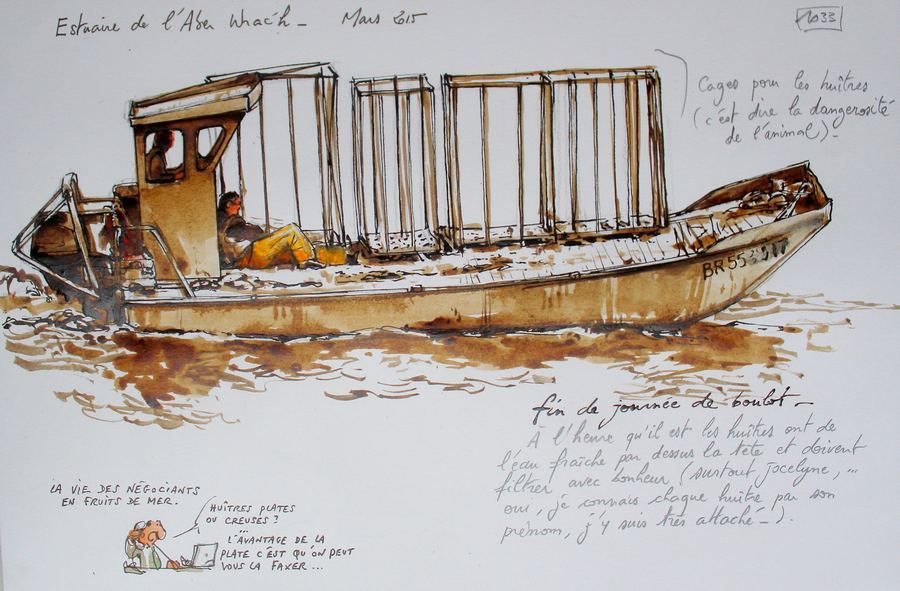 Estuaire de l'Aber Wrac'h - Mars 2015
1033
Cages pour les huîtres
(c'est dire la dangerosité
de l'animal)-
BR 55
fin de journée de boulot -
À l'heure qu'il est les huîtres ont de
l'eau fraîche par dessus la tête et doivent
filtrer avec bonheur (surtout Jocelyne, ...
oui, je connais chaque huître par son
prénom, j'y suis très attaché -).
LA VIE DES NÉGOCIANTS
EN FRUITS DE MER.
HUÎTRES PLATES
OU CREUSES ?
...
L'AVANTAGE DE LA
PLATE C'EST QU'ON PEUT
VOUS LA FAXER ...